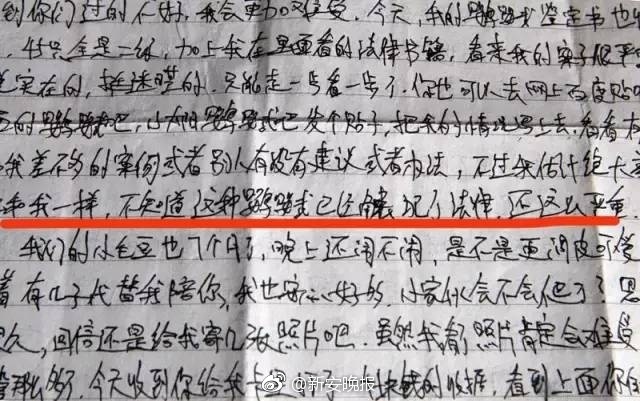 到你们过的不好，我会更加难受。今天，我的鹦鹉鉴定书也
45只全是二级，加上我在里面看的法律书籍，看来我的案子很严
实在的，挺迷茫的，只能走一步看一步了。你也可以去网上百度贴吧
的鹦鹉吧，小太阳鹦鹉吧发个贴子，把我的情况写上去，看看有
我差不多的案例或者别人有没有建议或者办法，不过我估计绝大
和我一样，不知道这种鹦鹉已经触犯了法律，还这么严重
我们的小毛豆也7个月了，晚上还闹不闹，是不是更调皮可爱
着有儿子代替我陪你，我也安心好多，小家伙会不会爬了？
久，回信还是给我寄几张照片吧。虽然我看了照片肯定会难受
今天收到你给我 的收据，看到上面你
@新安晚报